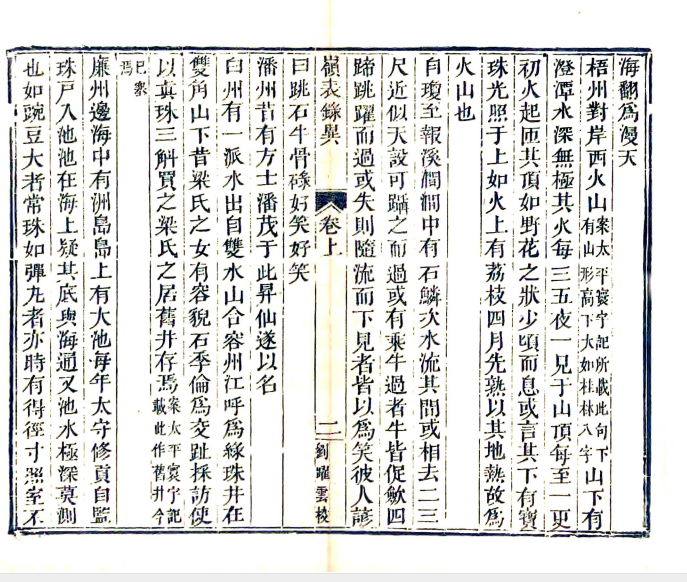 海翻爲漫天
梧州對岸西火山案太平寰宇記所載此句下有山形高下大如桂林八字山下有
澄潭水深無極其火每三五夜一見于山頂每至一更
初火起匝其頂如野花之狀少頃而息或言其下有寶
珠光照于上如火上有荔枝四月先熟以其地熱故爲
火山也
自瓊至報溪㵎㵎中有石鱗次水流其間或相去二三
尺近似天設可躡之而過或有乘牛過者牛皆促斂四
蹄跳躍而過或失則隨流而下見者皆以爲笑彼人諺
嶺表錄異 卷上 二 劉躍雲校
曰跳石牛骨碌好笑好笑
潘州昔有方士潘茂于此昇仙遂以名
白州有一派水出自雙水山合容州江呼爲綠珠井在
雙角山下昔梁氏之女有容貌石季倫爲交趾採訪使
以真珠三斛買之梁氏之居舊井存焉案太平寰宇記載此作舊井今
已塞焉
廉州邊海中有洲島島上有大池每年太守修貢自監
珠戸入池池在海上疑其底與海通又池水極深莫測
也如豌豆大者常珠如彈丸者亦時有得徑寸照室不